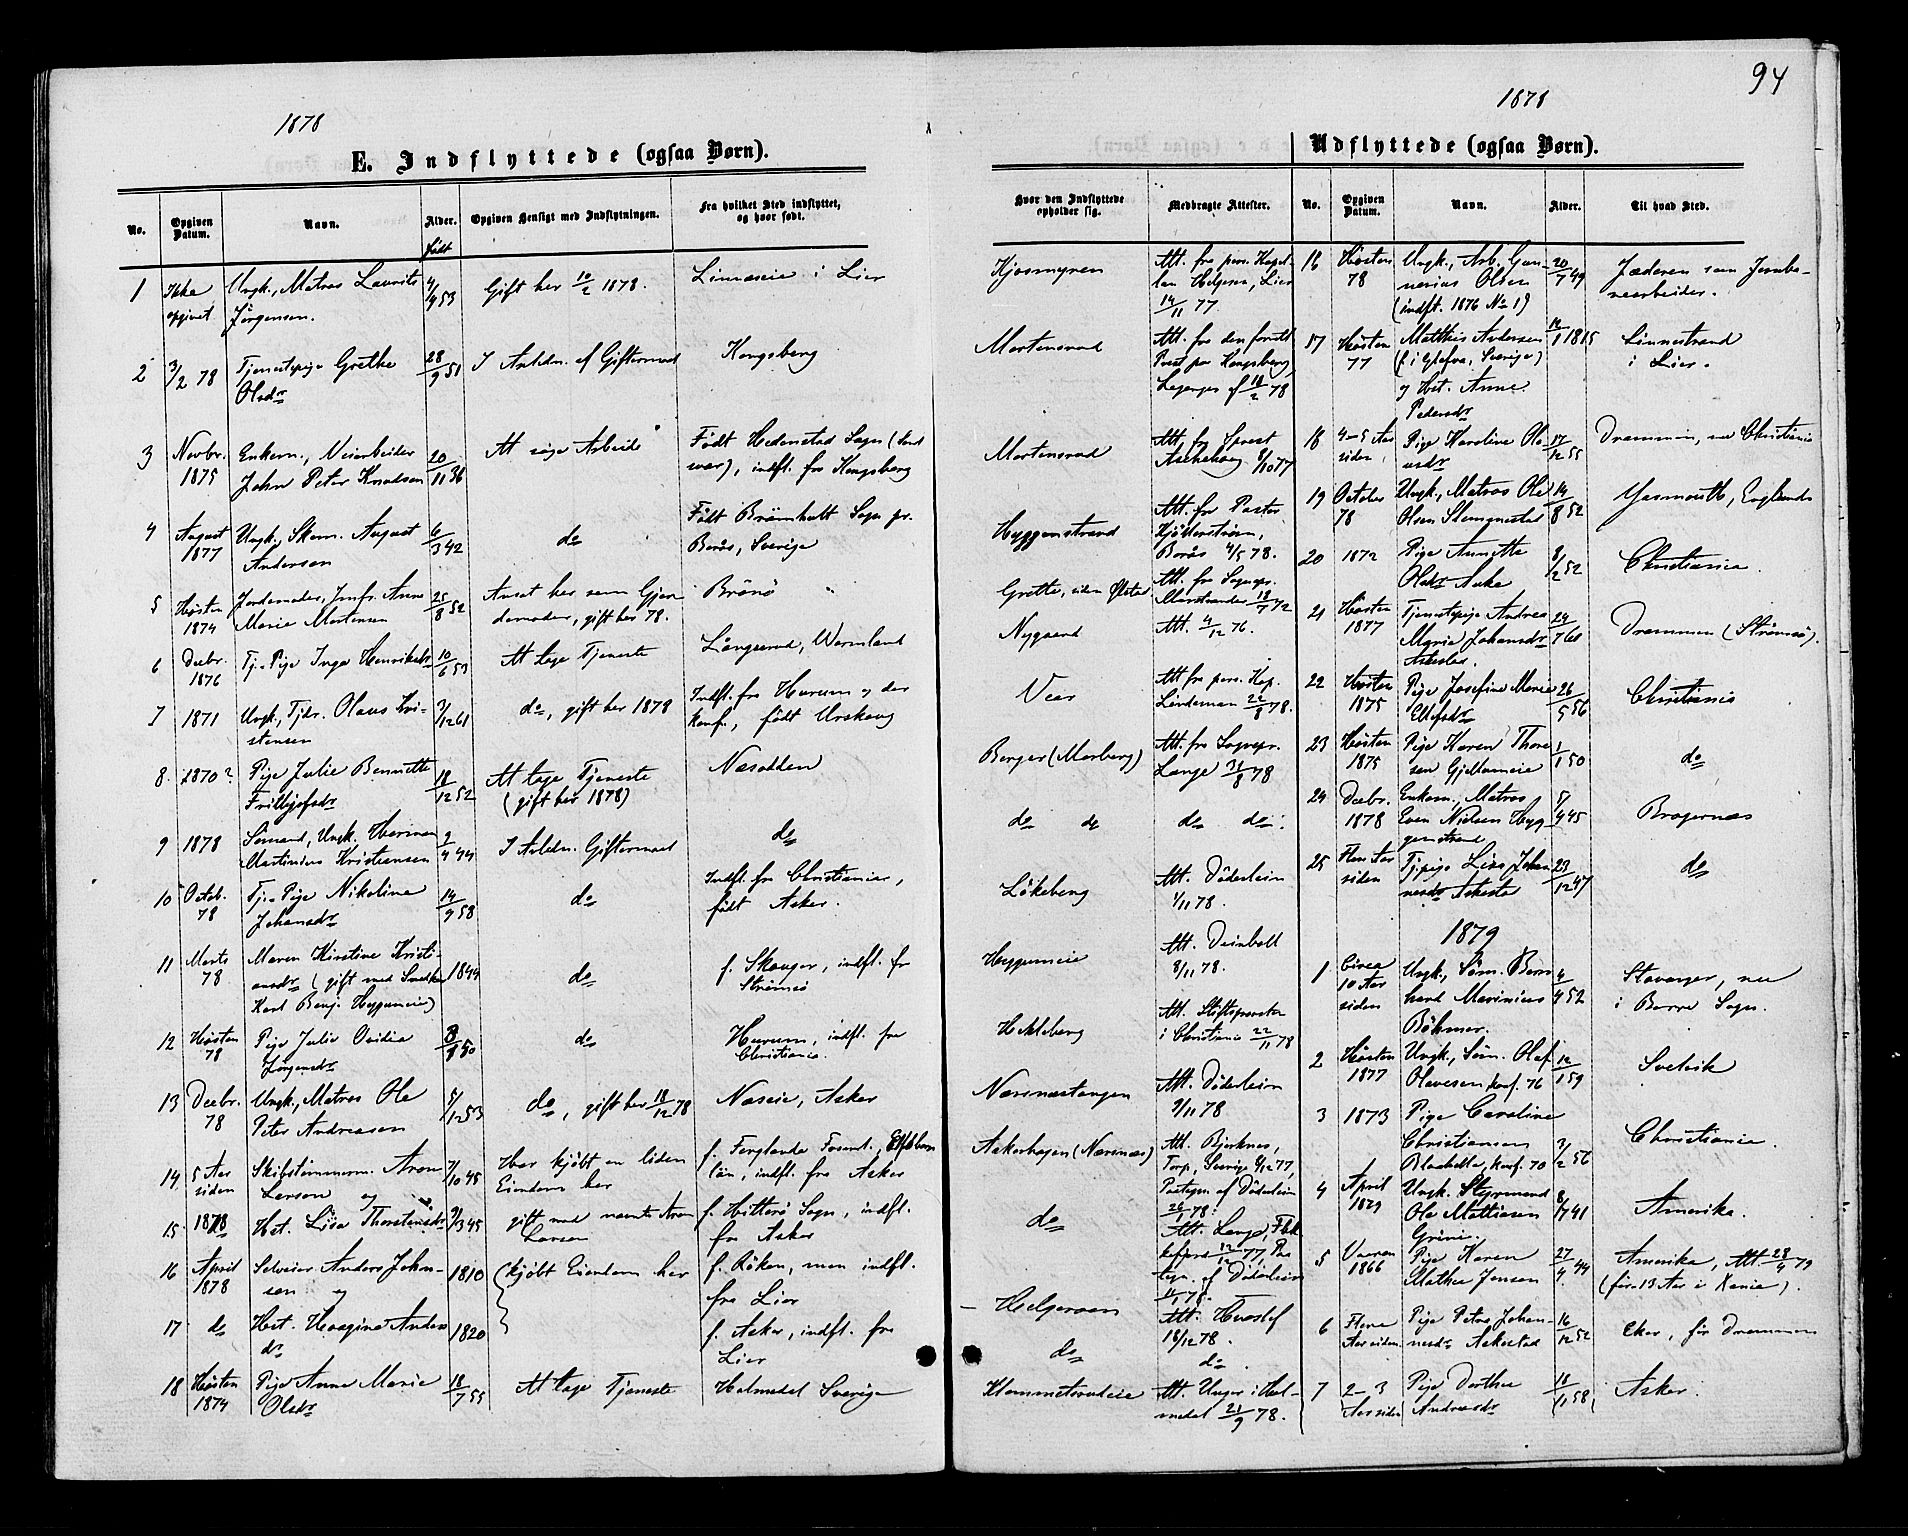 94
1878
E. Indflyttede (ogsaa Børn).
No.
Opgiven Datum.
Navn.
Alder.
født
Opgiven Hensigt med Indflytningen.
Fra hvilket Sted indflyttet, og hvor født.
1
Ikke opgivet
Ungk., Matros Laurits
Jørgensen.
4/4 53
Gift her 10/2 1878.
Linnæseie i Lier
2
3/2 78
Tjenestepige Grethe
Olsdr
28/9 51
I Anledn. af Giftermaal
Kongsberg
3
Novbr. 1875
Enkem., Veiarbeider
John Peter Knudsen
20/11 36
At søge Arbeide
Født Hedenstad Sogn (Sand
svær), indfl. fra Kongsberg
4
August 1877
Ungk., Skom. August
Andersen
6/3 42
do
Født Brömhult Sogn pr.
Borås, Sverige
5
Høsten 1874
Jordemoder, Jmfr. Anne
Marie Mortensen
25/8 52
Ansat her som Gjor
demoder, gift her 78.
Brönö
6
Decbr. 1876
Tj. Pige Inga Henriksdr
10/6 53
At tage Tjeneste
Långserud, Wermland
7
1871
Ungk., Tjdr. Olaus Kri-
stensen
3/12 61
do, gift her 1878
Indfl. fra Hurum og der
konf., født Urskoug
8.
1870?
Pige Julie Bennette
Frithjofsdr
18/12 52
At tage Tjeneste
(gift her 1878)
Næsodden
9
1878
Sømand, Ungk. Herman
Martinius Kristiansen
2/4 44
I Anledn. Giftermaal
do
10
Octob. 78
Tj. Pige Nikoline
Johansdr
14/9 58
do
Indfl. fra Christiania,
født Asker.
11
Marts 78
Maren Kirstine Kristi-
ansdr (gift med Snedker
Karl Benj. Hyggumeie)
1844
do
f. Skouger, indfl. fr
Strømsö
12
Høsten 78
Pige Julie Ovidia
Jørgensdr
8/8 50
do
Hurum, indfl. fra
Christiania.
13
Decbr. 78
Ungk., Matros Ole
Peter Andreasen
5/12 53
do, gift her 18/12 78
Næseie, Asker
14
5 Aar siden
Skibstömmerm. Aron
Larson og
7/10 45
Har kjøbt en liden
Eiendom her
f. Ferglanda Forsml., Elfsborg
län, indfl. fra Asker
15
1878
Hst. Lisa Thorstensdr
9/3 45
gift med nævnte Aron
Larson
f. Hitterö Sogn, indfl.
fra Asker
16
April 1878
Selveier Anders John-
sen og
1810
(kjöbt Eiendom her
f. Röken, men indfl.
fra Lier
17
do
Hst. Hoagine Anders
dr
1820
f. Asker, indfl. fra
Lier
18
Høsten 1874
Pige Anne Marie
Olsdr
18/7 55
At tage Tjeneste
Holmedal Sverige
1878
Udflyttede (ogsaa Børn).
Hvor den Indflyttede opholder sig.
Medbragte Attester.
No.
Opgiven Datum.
Navn.
Alder.
Til hvad Sted.
Kjosmyren
Att. fra pers. Kapel-
lan Helgesen, Lier
14/11 77.
16
Høsten 78
Ungk., Arb. Gun-
nerius Olsen
(indfl. 1876 No 1)
20/7 49
Jæderen som Jernba-
nearbeider.
Mortensrud
Att. fra den forestl.
Præst paa Kongsberg,
18/2 78
17
Høsten 77
Matthis Andersen
(f. i Sverige)
og Hst. Anne
Pedersdr
1815
Linnestrand
i Lier.
Mortensrud
Att. fra Sprest
Aschehoug 8/10 77
18
4-5 Aar siden
Pige Karoline Ola-
usdr
17/12 55
Drammen, nu Christiania
Hyggenstrand
Att. fra Pastor
Borås 4/5 78.
19
October 78
Ungk., Matros Ole
Olsen Slemmestad
14/8 52
Yarmouth, England
20
1872
Pige Annette
Olsdr Aake
8/2 52
Christiania.
Grette, siden Ølstad
Att. fra Sognepr.
Marstrander 18/7 72
Nygaard
Att. 4/12 76.
21
Høsten 1877
Tjenestepige Andrea
Marie Johansdr
Askestad.
24/7 60
Drammen (Strömsö).
Vear
Att fra pers. Kap.
Lindeman 22/8 78.
22
Høsten 1875
Pige Josefine Marie
Ellefsdr
26/5 56
Christiania
Berger (Morberg)
Att. fra Sognepr.
Lange 31/8 78
23
Høsten 1875
Pige Karen Thore
sen Gjellumeie
1/1 50
do
do do
do do.
24
Decbr. 1878
Enkem., Matros
Even Nielsen Hyg
genstrand
5/4 45
Bragernæs
Lökeberg
Att. Döderlein
1/11 78.
25
Flere Aar siden
Tjpige Lisa Johan
nesdr Askestad
23/12 47
do
1879
Hyggumeie
Att. Deinboll
8/11 78.
1
Circa 10 Aar siden
Ungk., Söm. Bern
hard Marinius
Böhmer.
4/4 52
Stavanger, nu
i Borre Sogn.
Hekleberg
Att. Stiftsprovsten
i Christiania 22/11 78
2
Høsten 1877
Ungk., Söm. Olaf
Olavesen konf. 76
12/1 59
Svelvik
Næsnæstangen
Att. Döderlein
9/11 78
3
1873
Pige Caroline
Christiansen
Blaabella, konf. 70
3/2 56
Christiania.
Askerhagen (Nærsnæs)
Att. Björknes,
Torp, Sverige 9/12 77,
Paategn. af Döderlein
26/1 78.
4
April 1879
Ungk. Styrmand
Ole Mathiesen
Grini.
8/7 41
Amerika.
do
Att. Lange, Flek
kefjord 12/12 77, Paa
tegn. af Döderlein
11/1 78.
5
Vaaren 1866
Pige Karen
Mathea Jensen
27/4 44
Amerika, Att. 28/4 79
(før 13 Aar i Xania).
Helgeroen
Att. Hvoslef
18/12 78.
6
Flere Aar siden
Pige Petra Johan-
nesdr Askestad
16/12 52
Eker, før Drammen
do
do.
Klemmetsrudeie
Att. Unger i Hol-
medal 21/9 78.
7
2-3 Aar siden
Pige Dorthea
Andreasdr
18/11 58
Asker.